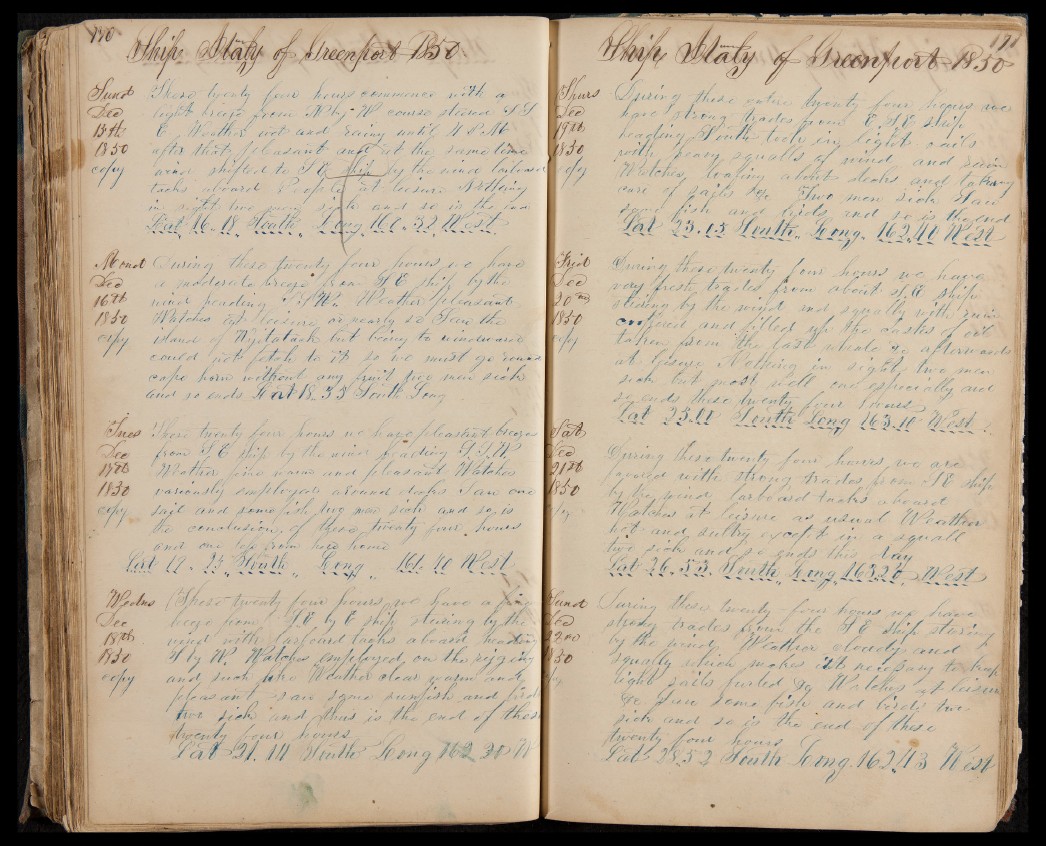 170
Ship Italy of Greenport 1850
Sund Dec 15th 1850 copy
These twenty four hours commence with a
light breeze from N by W course steered S S
E Weather wet and rainy until 4 P.M
after that pleasant and at the same time
wind shifted to S E ship by the wind larboard
tacks aboard People at leisure Nothing
in sight two men sick and so is the end
Lat 16.18 South Long 161.32 West
Mond Dec 16th 1850 copy
During these twenty four hours we have
a moderate breeze from S E ship by the
wind heading S W Weather pleasant
Watches at leisure or nearly so Saw the
island of Whytatack but being to windward
could not fetch to it so we must go round
cape horn without any fruit two men sick
and so ends Lat 18.53 South Long
Tues Dec 17th 1850 copy
These twenty four hours we have pleasant breezes
from S E ship by the wind heading S.S.W
Weather fine warm and pleasant Watches
variously employed around decks Saw one
sail and some fish two men sick and so is
the conclusion of these twenty four hours
and one less from home
Lat 21.25 South Long 161.40 West
Wednes Dec 18th 1850 copy
These twenty four hours we have a fine
breeze from S E by E ship steering by the
wind with larboard tacks aboard heading
S by W Watches employed on the rigging
and such like Weather clear warm and
pleasant saw some sunfish and birds
two sick and this is the end of these
twenty four hours
Lat 21.14 South Long 162.30 W
171
Ship Italy of Greenport 1850
Thurs Dec 19th 1850 copy
During these entire twenty four hours we
have strong trades from E S E ship
heading South took in light sails
with heavy squalls of wind and rain
Watches loafing about decks and taking
care of sails &c Two men sick Saw
some fish and birds and so is the end
Lat 23.15 South Long. 162.40 West
Frid Dec 20nd 1850 copy
During these twenty four hours we have
very fresh trades from about S E ship
steering by the wind and squally with rain
coopered and filled up the casks of oil
taken from the last whale &c afterwards
at leisure Nothing in sight two men
sick but most well one especially and
so ends these twenty four hours
Lat 23.11 South Long 163.10 West
Sat Dec 21st 1850
During these twenty four hours we are
favored with strong trades from S E ship
by the wind larboard tacks aboard
Watches at leisure as usual Weather
hot and sultry except in a squall
two sick and so ends this day
Lat 26.53 South Long 163.20 West
Sund Dec 22nd 1850
During these twenty four hours we have
strong trades from the S E ship steering
by the wind Weather cloudy and
squally which makes it necessary to keep
light sails furled &c Watches at leisure
&c Saw some fish and birds two
sick and so is the end of these
twenty four hours
Lat 28.52 South Long. 162.43 West